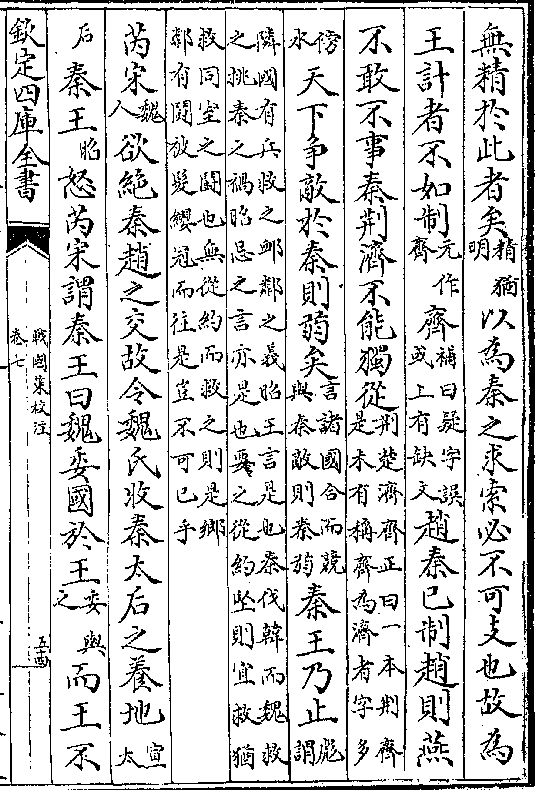 無精於此者矣精猶明以為秦之求索必不可支也故為
王計者不如制元作齊齊補曰疑字誤或上有缺文趙秦已制趙則燕
不敢不事秦荆濟不能獨從荆楚濟齊正曰一本荆齊是未有稱齊為濟者字多
傍水天下爭敵於秦則弱矣言諸國合而競與秦敵則秦弱秦王乃止彪謂
隣國有兵救之卹鄰之義昭王言是也秦伐韓而魏救
之挑秦之禍昭忌之言亦是也要之從約堅則宜救猶
救同室之鬭也無從約而救之則是鄉
鄰有鬭放髮纓冠而往是豈不可已乎
芮宋魏人欲絶秦趙之交故令魏氏收秦太后之養地宣太
后秦王昭怒芮宋謂秦王曰魏委國於王委與之而王不
欽定四庫全書
戰國策校注
卷七
五四